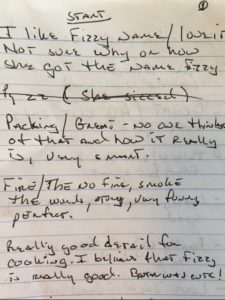 START
1
I like Fizzy name/love it
Not sure why or how
she got the name Fizzy
Packing/Great - no one thinks
of that and how it really
is, very smart.
Fire/The no fire, smoke
the words, story, very funny
perfect.
Really good detail for
cooking. I believe that Fizzy
is really good. was cute!